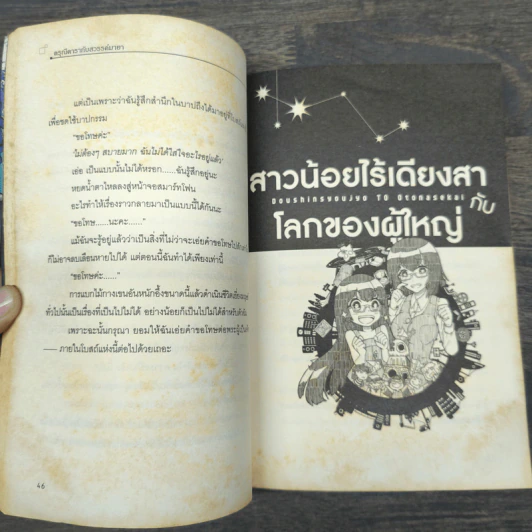 ดรุณีดารากับสวรรค์มายา
แต่เป็นเพราะว่าฉันรู้สึกสำนึกในบาปถึงได้มาอยู่ที่
เพื่อชดใช้บาปกรรม
“ขอโทษค่ะ”
‘ไม่ต้องๆ สบายมาก ฉันไม่ได้ใส่ใจอะไรอยู่แล้ว’
เอ่อ เป็นแบบนั้นไม่ได้หรอก......ฉันรู้สึกอยู่นะ
หยดน้ำตาไหลลงสู่หน้าจอสมาร์ทโฟน
อะไรทำให้เรื่องราวกลายมาเป็นแบบนี้ได้กันนะ
“ขอโทษ......นะคะ......”
แม้ฉันจะรู้อยู่แล้วว่าเป็นสิ่งที่ไม่ว่าจะเอ่ยคำขอโทษไป
ก็ไม่อาจลบเลือนหายไปได้ แต่ตอนนี้ฉันทำได้เพียงเท่านี้
“ขอโทษค่ะ......”
การแบกไม้กางเขนอันหนักอึ้งขนาดนี้แล้วดำเนินชีวิต
ทั่วไปนั้นเป็นเรื่องที่เป็นไปไม่ได้ อย่างน้อยก็เป็นไปไม่ได้สำหรับ
เพราะฉะนั้นกรุณา ยอมให้ฉันเอ่ยคำขอโทษต่อพระผู้เป็น
── ภายในโบสถ์แห่งนี้ต่อไปด้วยเถอะ
46
สาวน้อยไร้เดียงสา
Doushinsyoujyo TO Otonasekai
กับ
โลกของผู้ใหญ่